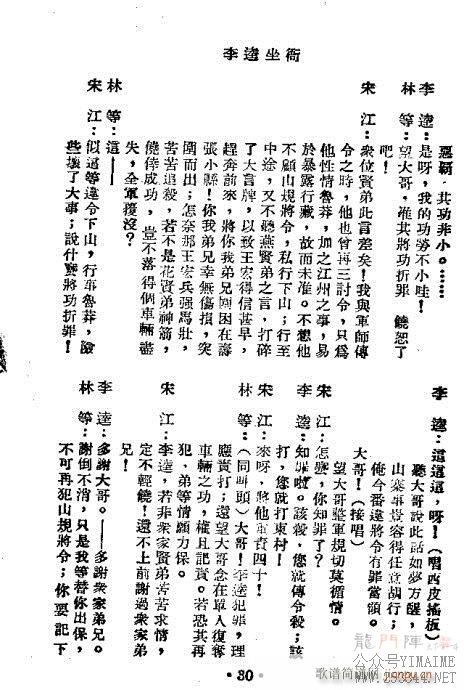 李逵坐衙
惡霸，其功非小。……
李　逵：是呀，我的功勞不小哇！
林　等：望大哥，准其將功折罪，饒恕了
吧！
宋　江：衆位賢弟此言差矣！我與軍師傳
令之時，他也曾再三討令，只爲
他性情魯莽，加之江州之事，易
於暴露行藏，故而未准。不想他
不顧山規將令，私行下山；行至
中途，又不聽燕賢弟之言，打碎
了大言牌，以致王宏得信甚早，
趕奔前來，將你我弟兄圍困在壽
張小縣！你我弟兄幸無傷損，突
圍而出；怎奈那王宏兵强馬壯，
苦苦追殺，若不是花賢弟神箭，
僥倖成功，豈不落得個車輛盡
失，全軍覆沒？
林　等：這——
宋　江：似這等違令下山，行事魯莽，險
些壞了大事；說什麽將功折罪！
李　逵：這這這，呀！（唱西皮搖板）
聽大哥說此話如夢方醒，
山寨事豈容得任意胡行；
俺今番違將令有罪當領。
大哥！（接唱）
望大哥整軍規切莫循情。
宋　江：怎麽，你知罪了？
李　逵：知罪啦。該殺，您就傳令殺；該
打，您就打東村！
宋　江：來呀，將他重責四十！
林　等：（同叫頭）大哥！李逵犯罪，理
應責打；還望大哥念在單人復奪
車輛之功，權且記責。若恐其再
犯，弟等情願力保。
宋　江：李逵，若非衆家賢弟苦苦求情，
定不輕饒！還不上前謝過衆家弟
兄！
李　逵：多謝大哥。——多謝衆家弟兄。
林　等：謝倒不消，只是我等替你出保，
不可再犯山規將令；你要記下
· 30 ·
龍門陣
公众号YIMAIME
歌谱简谱网